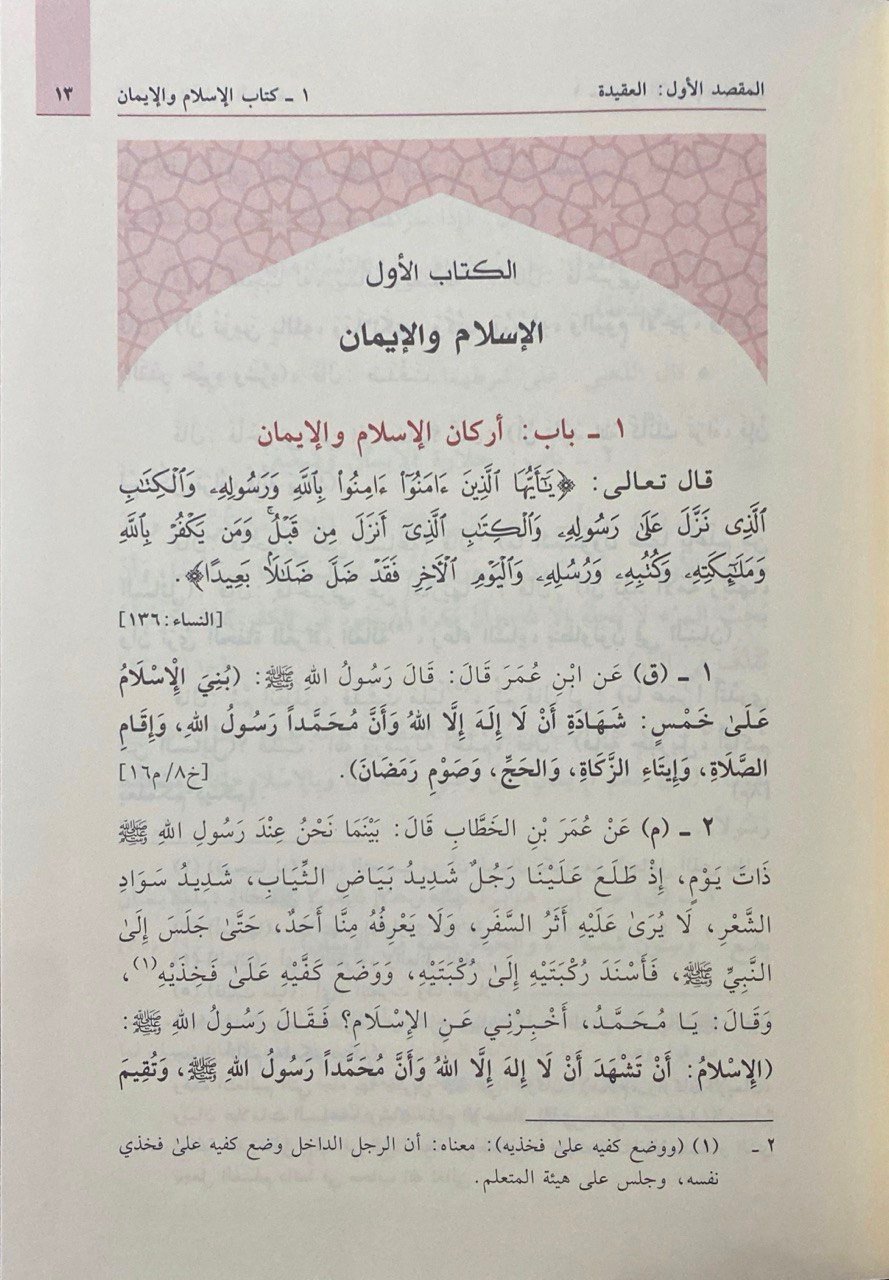 المقصد الأول: العقيدة
١ - كتاب الإسلام والإيمان
١٣
الكتاب الأول
الإسلام والإيمان
١ - باب: أركان الإسلام والإيمان
قال تعالى: ﴿يَٰٓأَيُّهَا ٱلَّذِينَ ءَامَنُوٓاْ ءَامِنُواْ بِٱللَّهِ وَرَسُولِهِۦ وَٱلۡكِتَٰبِ
ٱلَّذِي نَزَّلَ عَلَىٰ رَسُولِهِۦ وَٱلۡكِتَٰبِ ٱلَّذِيٓ أَنزَلَ مِن قَبۡلُۚ وَمَن يَكۡفُرۡ بِٱللَّهِ
وَمَلَٰٓئِكَتِهِۦ وَكُتُبِهِۦ وَرُسُلِهِۦ وَٱلۡيَوۡمِ ٱلۡأٓخِرِ فَقَدۡ ضَلَّ ضَلَٰلَۢا بَعِيدًا﴾.
[النساء:١٣٦]
١ - (ق) عَنِ ابْنِ عُمَرَ قَالَ: قَالَ رَسُولُ اللهِ ﷺ: (بُنِيَ الإِسْلَامُ
عَلَىٰ خَمْسٍ: شَهَادَةِ أَنْ لَا إِلَهَ إِلَّا اللهُ وَأَنَّ مُحَمَّداً رَسُولُ اللهِ، وَإِقَامِ
الصَّلَاةِ، وَإِيتَاءِ الزَّكَاةِ، وَالحَجِّ، وَصَوْمِ رَمَضَانَ). [خ٨/ م١٦]
٢ - (م) عَنْ عُمَرَ بْنِ الخَطَّابِ قَالَ: بَيْنَمَا نَحْنُ عِنْدَ رَسُولِ اللهِ ﷺ
ذَاتَ يَوْمٍ، إِذْ طَلَعَ عَلَيْنَا رَجُلٌ شَدِيدُ بَيَاضِ الثِّيَابِ، شَدِيدُ سَوَادِ
الشَّعْرِ، لَا يُرَىٰ عَلَيْهِ أَثَرُ السَّفَرِ، وَلَا يَعْرِفُهُ مِنَّا أَحَدٌ، حَتَّىٰ جَلَسَ إِلَىٰ
النَّبِيِّ ﷺ، فَأَسْنَدَ رُكْبَتَيْهِ إِلَىٰ رُكْبَتَيْهِ، وَوَضَعَ كَفَّيْهِ عَلَىٰ فَخِذَيْهِ(١)،
وَقَالَ: يَا مُحَمَّدُ، أَخْبِرْنِي عَنِ الإِسْلَامِ؟ فَقَالَ رَسُولُ اللهِ ﷺ:
(الإِسْلَامُ: أَنْ تَشْهَدَ أَنْ لَا إِلهَ إِلَّا اللهُ وَأَنَّ مُحَمَّداً رَسُولُ اللهِ ﷺ، وَتُقِيمَ
٢ - (١) (ووضع كفيه علىٰ فخذيه): معناه: أن الرجل الداخل وضع كفيه علىٰ فخذي
نفسه، وجلس على هيئة المتعلم.